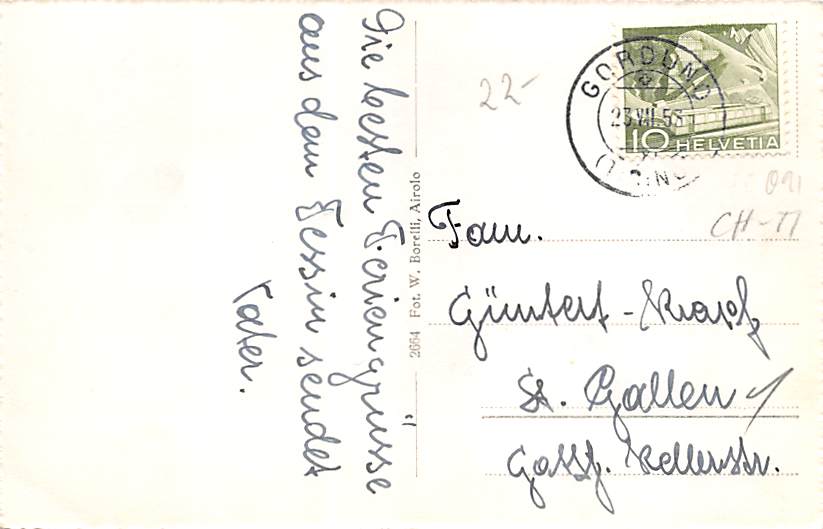 Die besten Feriengrüsse
aus dem Tessin sendet
Vater.
2664 Fot. W. Borelli, Airolo
22-
GORDUNO
23.VII.53
(TICINO)
10 HELVETIA
CH-TI
Fam.
Güntert-Krapf
St. Gallen
Gottf. Kellerstr.